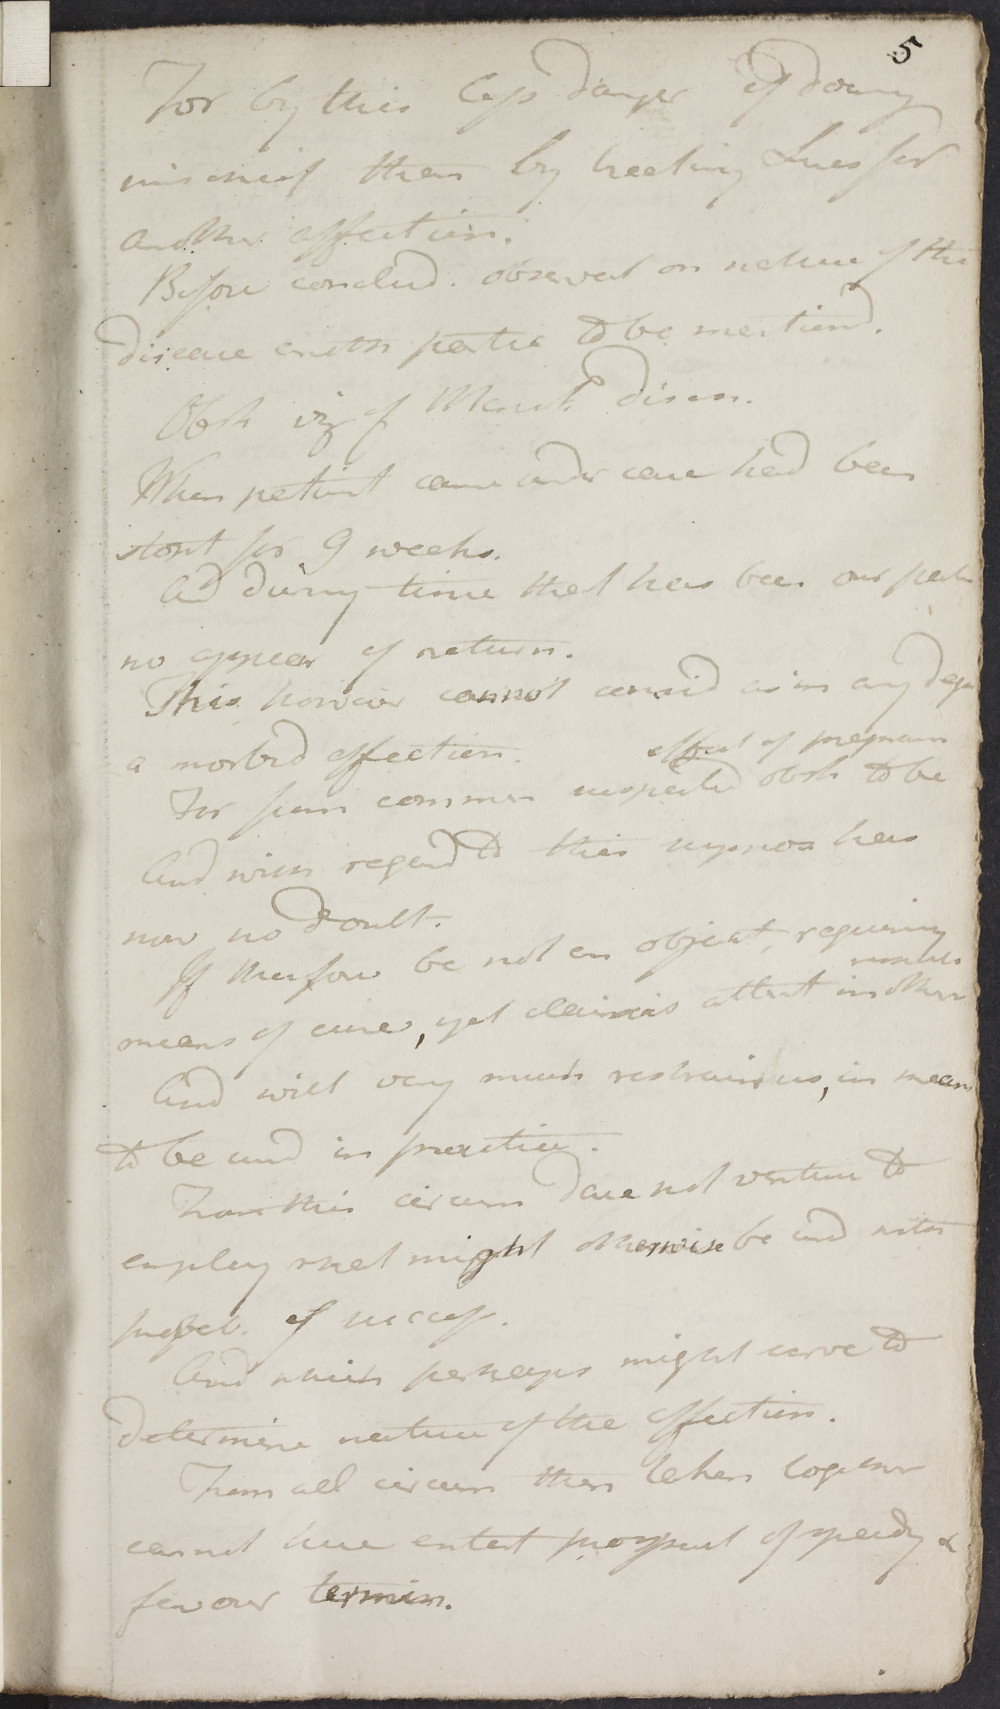 5
For by this less danger of doing
mischief than by treating Lues for
another affection.
Before conclud. observat on nature of this
disease anoth partic to be mentiond.
Obst viz of Menst. Disch.
When patient came under care had been
obst for 9 weeks.
And during time that has been our patient
no appear of return.
This however cannot consid as in any degr
a morbid affection.
effect of pregnan
For from commen suspected obst to be
And with regard to this suppos has
now no doubt.
If therefore be not an object, requiring
means of cure, yet claims attent in other
And will very much restrain us, in means
to be usd in practice.
From this circum dare not venture to
employ what might otherwise be usd with
prospect. of success.
And which perhaps might serve to
determine nature of the affection.
From all circum then taken together
cannot have entert prospect of speedy &
favour termin.